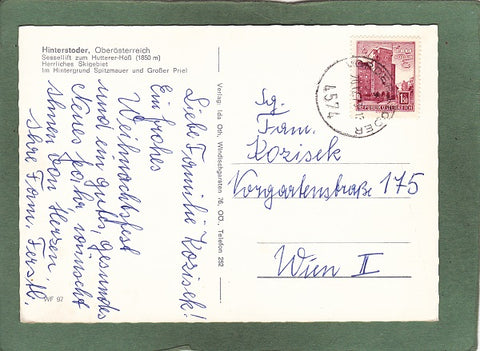 Hinterstoder, Oberösterreich
Sessellift zum Hutterer-Höß (1850 m)
Herrliches Skigebiet
Im Hintergrund Spitzmauer und Großer Priel
Liebe Familie Kozisek!
Ein frohes
Weihnachtsfest
und ein gutes, gesundes
Neues Jahr, wünscht
Ihnen von Herzen
Ihre Fam. Ferstl.
WF 97
Verlag: Ida Oth, Windischgarsten 76, OÖ., Telefon 252
4574
REPUBLIK ÖSTERREICH
Sg.
Fam.
Kozisek
Vorgartenstraße 175
Wien II